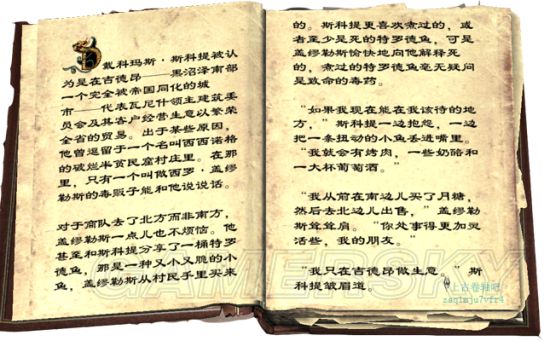 戴科玛斯·斯科提被认
为是在吉德昂——黑沼泽南部
一个完全被帝国同化的城
市——代表瓦尼什领主建筑委
员会及其客户经营生意以繁荣
全省的贸易。出于某些原因，
他曾逗留于一个名叫西西诺格
的破烂半贫民窟村庄里。在那
里，只有一个叫做西罗·盖缪
勒斯的毒贩子能和他说说话。
对于商队去了北方而非南方，
盖缪勒斯一点儿也不烦恼。他
甚至和斯科提分享了一桶特罗
德鱼，那是一种又小又脆的小
鱼，盖缪勒斯从村民手里买来
的。斯科提更喜欢煮过的，或
者至少是死的特罗德鱼，可是
盖缪勒斯愉快地向他解释死
的，煮过的特罗德鱼毫无疑问
是致命的毒药。
“如果我现在能在我该待的地
方，”斯科提一边抱怨，一边
把一条扭动的小鱼丢进嘴里。
“我就会有烤肉，一些奶酪和
一大杯葡萄酒。”
“我从前在南边儿买了月糖，
然后去北边儿出售，”盖缪勒
斯耸耸肩。“你处事得更加灵
活些，我的朋友。”
“我只在吉德昂做生意。”斯
科提皱眉道。
上古卷轴吧
zaqimju7vfr4
GAMERSKY